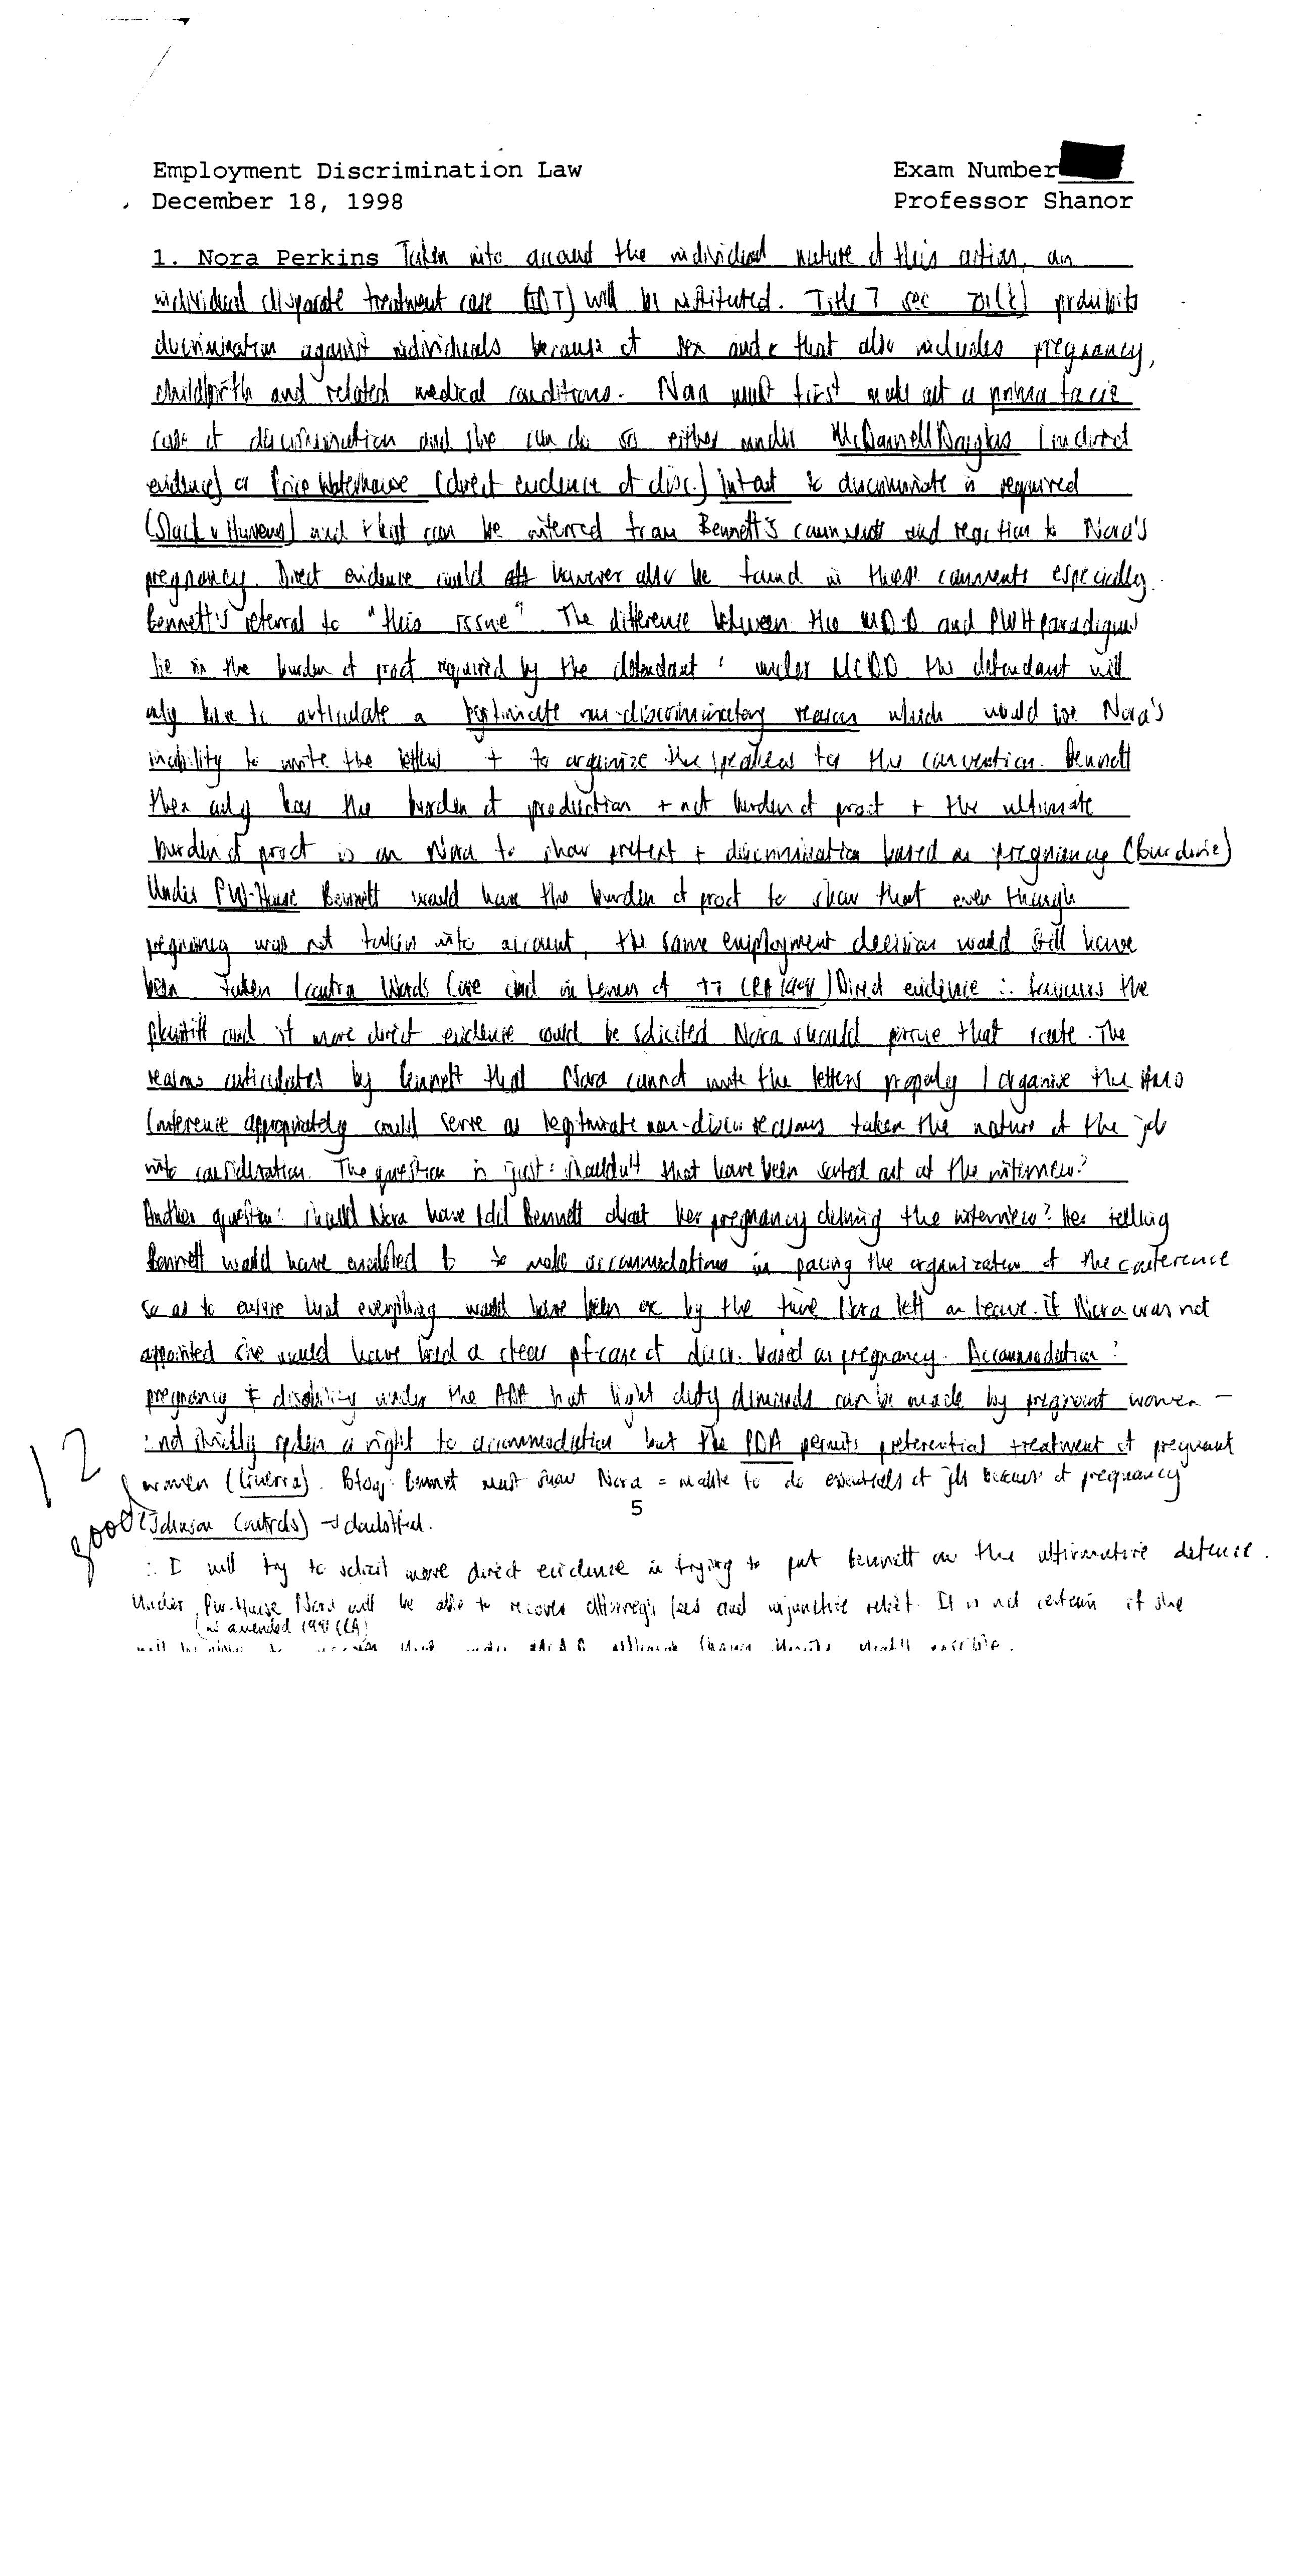 Employment Discrimination Law
Exam Number
December 18, 1998
Professor Shanor
1. Nora Perkins Taken into account the individual nature of this action, an
individual disparate treatment case (IDT) will be instituted. Title 7 sec 701(k) prohibits
discrimination against individuals because of sex and that also includes pregnancy,
childbirth and related medical conditions. Nora must first make out a prima facie
case of discrimination and she can do so either under McDonnell Douglas (indirect
evidence) or Price Waterhouse (direct evidence of disc.) Intent to discriminate is required
(Slack v Havens) and that can be inferred from Bennett's comments and reaction to Nora's
pregnancy. Direct evidence could however also be found in these comments especially
Bennett's referral to "this issue". The difference between the McD-D and PWH paradigms
lie in the burden of proof required by the defendant : under McDD the defendant will
only have to articulate a legitimate non-discriminatory reason which would be Nora's
inability to write the letters + to organize the speakers for the convention. Bennett
then only has the burden of production + not burden of proof + the ultimate
burden of proof is on Nora to show pretext + discrimination based on pregnancy (Burdine)
Under PW-House Bennett would have the burden of proof to show that even though
pregnancy was not taken into account, the same employment decision would still have
been taken (contra Wards Cove and in terms of CRA 1991) Direct evidence ∴ favours the
plaintiff and if more direct evidence could be solicited Nora should pursue that route. The
reasons articulated by Bennett that Nora cannot write the letters properly / organise the
Conference appropriately could serve as legitimate non-discr. reasons taken the nature of the job
into consideration. The question is just : shouldn't that have been sorted out at the interview?
Another question: should Nora have told Bennett about her pregnancy during the interview? Her telling
Bennett would have enabled B to make accommodations in pacing the organization of the conference
so as to ensure that everything would have been ok by the time Nora left on leave. If Nora was not
appointed she would have had a clear pf-case of discr. based on pregnancy. Accommodation :
pregnancy ≠ disability under the ADA but light duty demands can be made by pregnant women –
∴ not strictly spoken a right to accommodation but the PDA permits preferential treatment of pregnant
12
women (Guerra). Bfoq: Bennett must show Nora = unable to do essentials of job because of pregnancy
5
good
(Johnson Controls) → doubtful.
∴ I will try to solicit more direct evidence in trying to put Bennett on the affirmative defence.
Under PW-House Nora will be able to recover attorney's fees and injunctive relief. It is not certain if she
(as amended 1991 CRA)